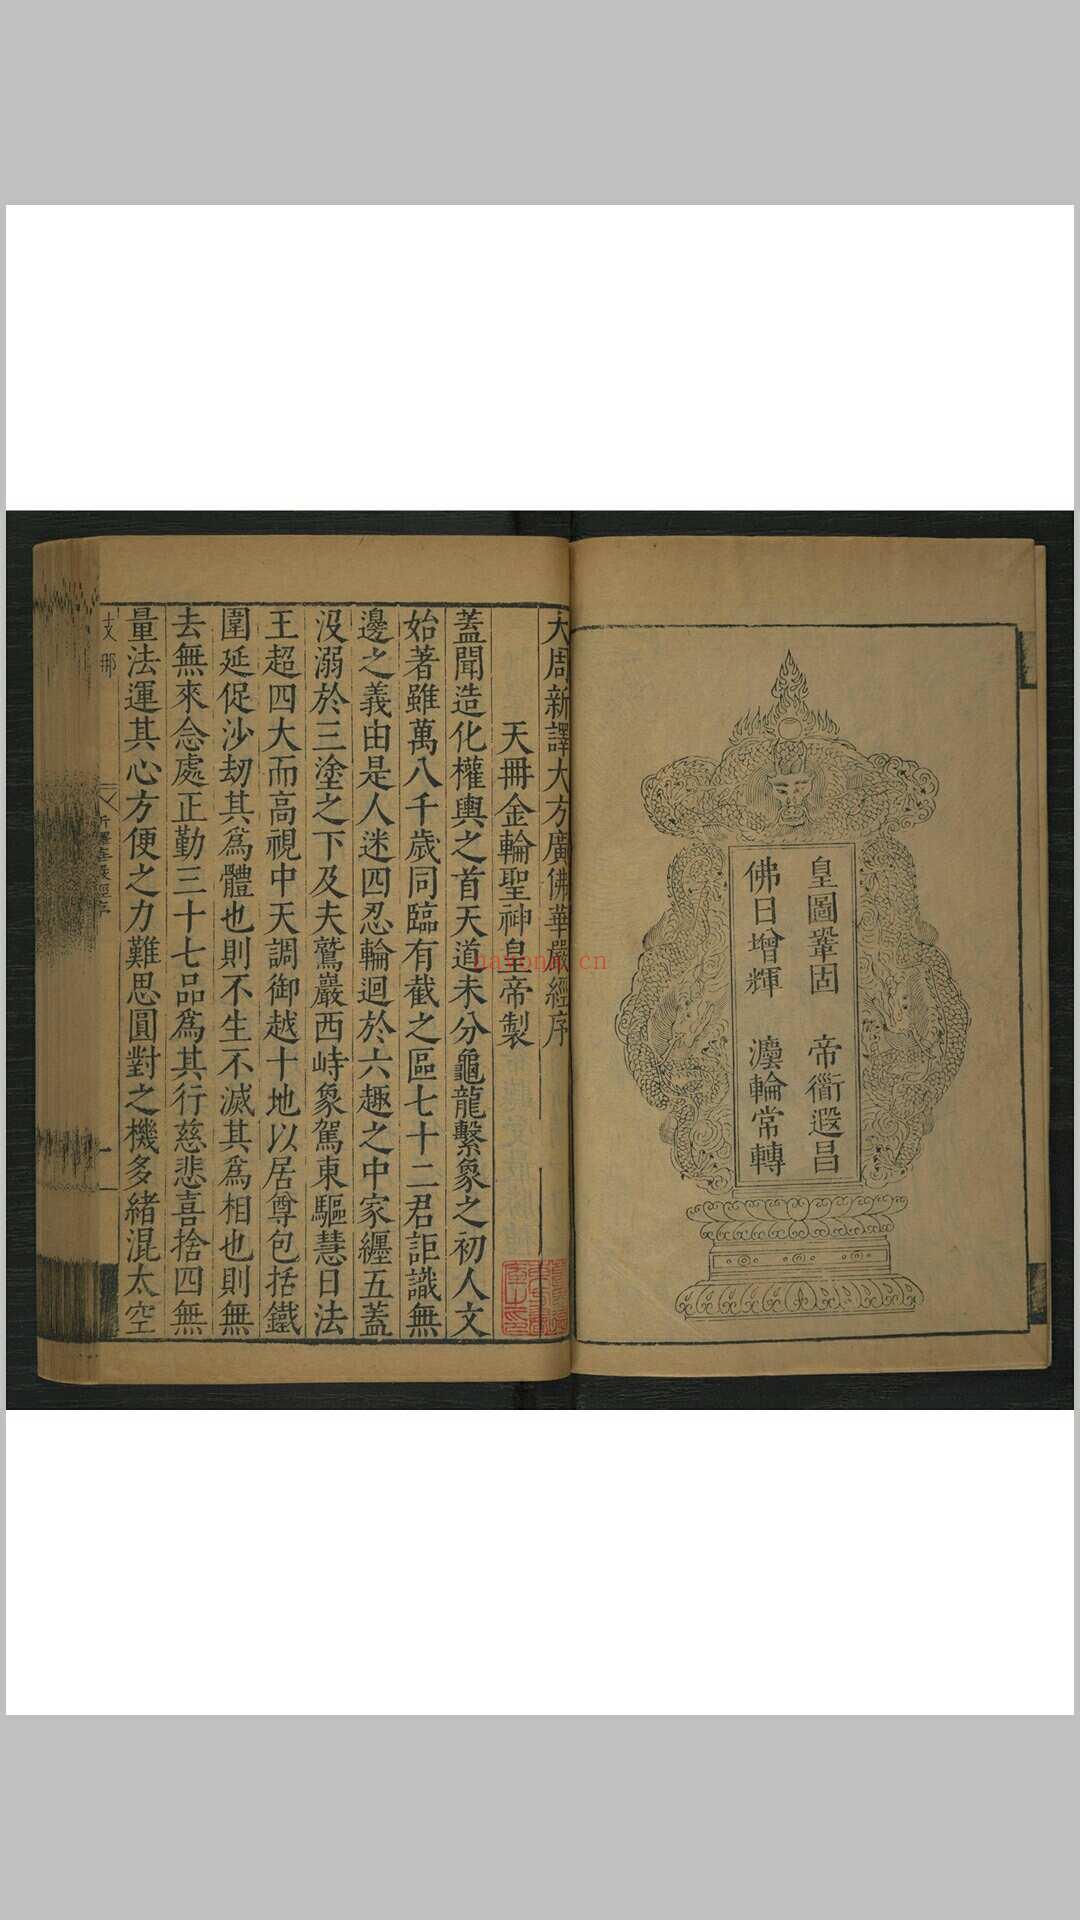 皇圖鞏固 帝衟遐昌
佛日增輝 灋輪常轉
大周新譯大方廣佛華嚴經序
天冊金輪聖神皇帝製
蓋聞造化權輿之首天道未分龜龍繫象之初人文
始著雖萬八千歲同臨有截之區七十二君詎識無
邊之義由是人迷四忍輪迴於六趣之中家纏五蓋
沒溺於三塗之下及夫鷲巖西峙象駕東驅慧日法
王超四大而高視中天調御越十地以居尊包括鐵
圍延促沙劫其爲體也則不生不滅其爲相也則無
去無來念處正勤三十七品爲其行慈悲喜捨四無
量法運其心方便之力難思圓對之機多緒混太空
支那
新譯華嚴經序
一